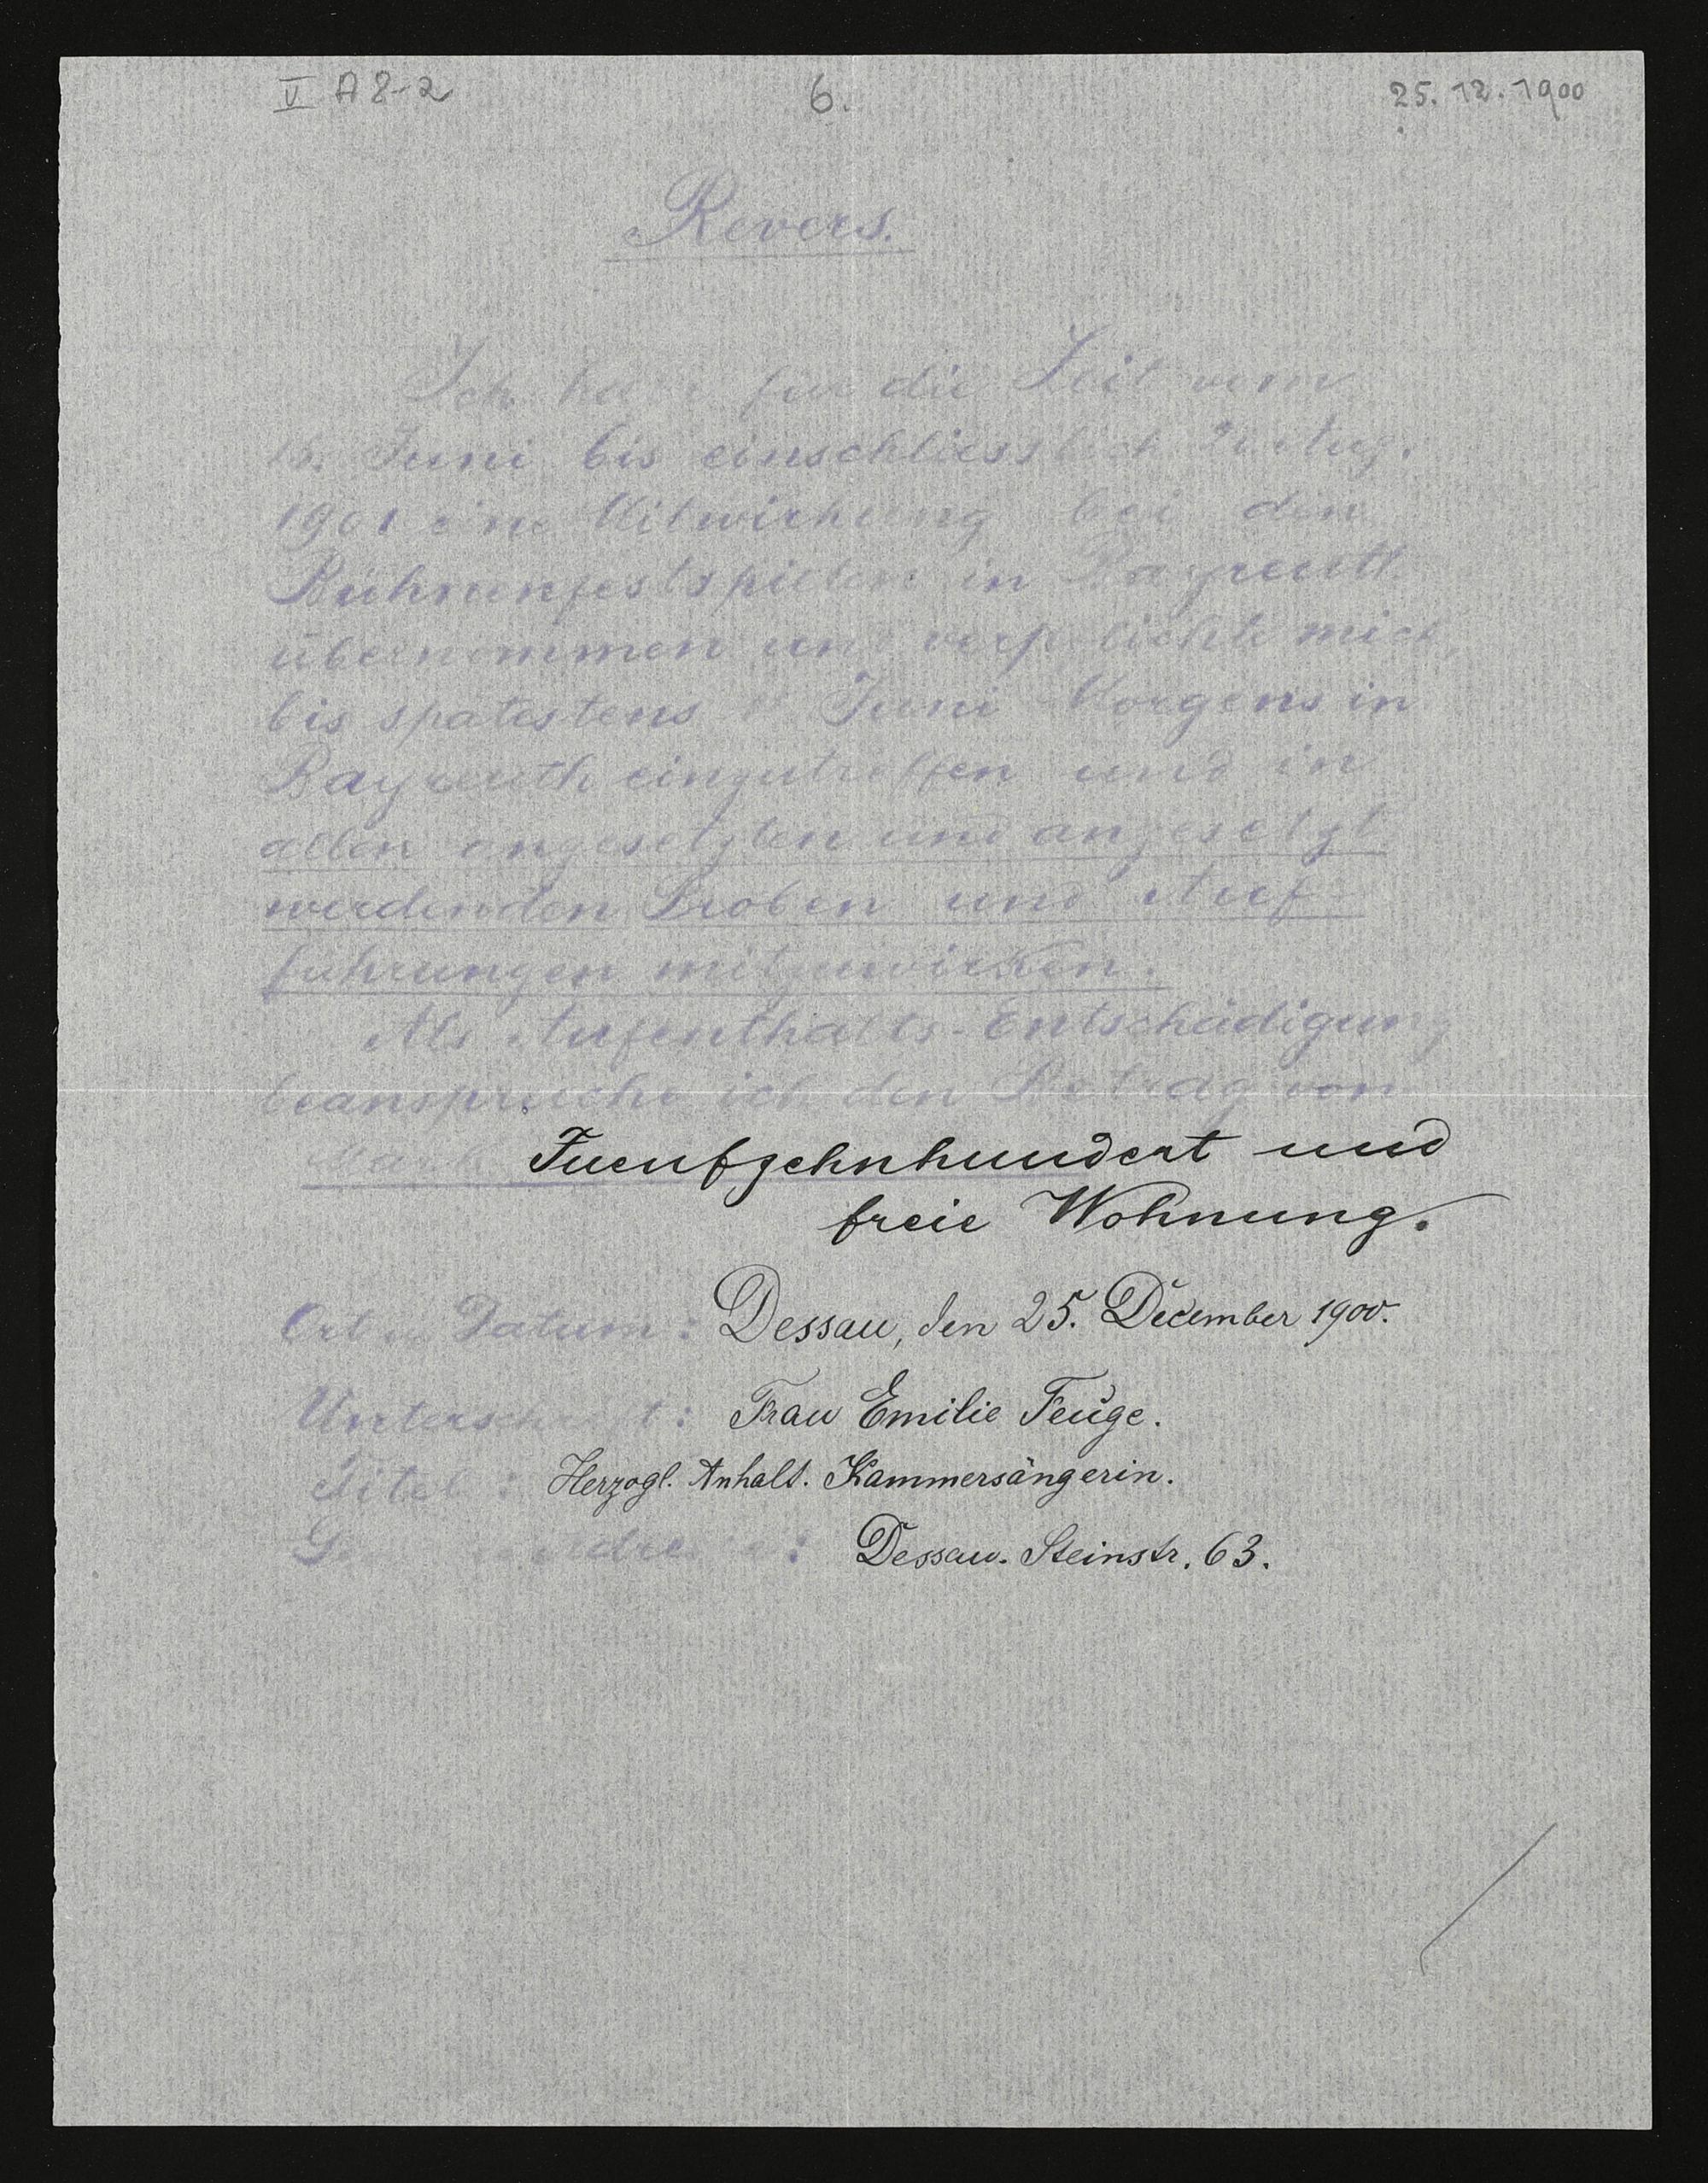 V A 8-2 6. 25.12.1900
Revers.
Ich habe für die Zeit vom
Juni bis einschliesslich Aug.
1901 eine Mitwirkung bei den
Bühnenfestspielen in Bayreuth
übernommen und verpflichte mich,
bis spätestens Juni Morgens in
Bayreuth einzutreffen und in
allen angesetzten und angesetzt
werdenden Proben und Auf-
führungen mitzuwirken.
Als Aufenthalts-Entschädigung
beanspruche ich den Betrag von
Mark Fuenfzehnhundert und
freie Wohnung.
Ort u. Datum: Dessau, den 25. December 1900.
Unterschrift: Frau Emilie Feuge.
Titel: Herzogl. Anhalt. Kammersängerin.
Dessau. Steinstr. 63.